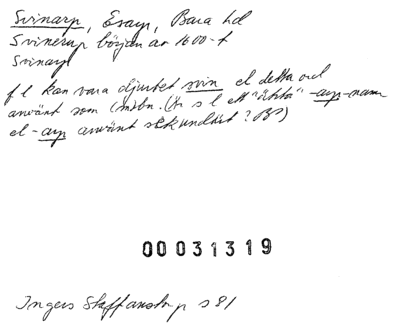 Svinarp, Esarp, Bara hd
Svinerup början av 1600-t
Svinarp
f l kan vara djuret svin el detta ord
använt som (mbn. (Är s l ett "äkta" -arp-namn
el -arp använt sekundärt? BP)
00031319
Ingers Staffanstorp s 81